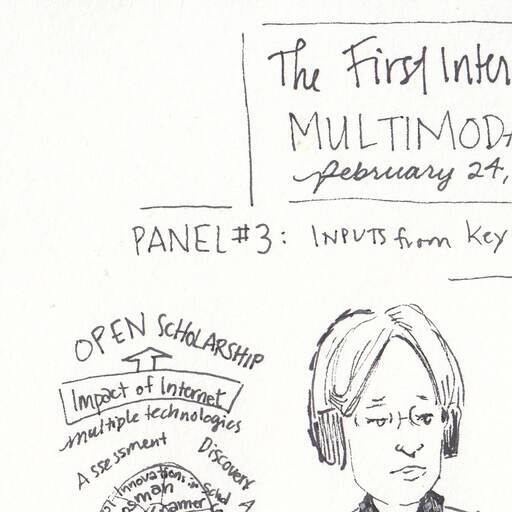 The First Inter
MULTIMODA
february 24,
PANEL #3: INPUTS from Key
OPEN SCHOLARSHIP
Impact of Internet
multiple technologies
Assessment
Discovery
Innovations